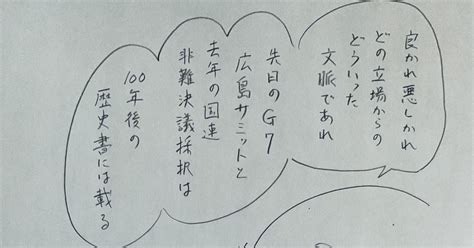 良かれ悪しかれ
どの立場からの
どういった
文脈であれ
先日のG7
広島サミットと
去年の国連
非難決議採択は
100年後の
歴史書には載る